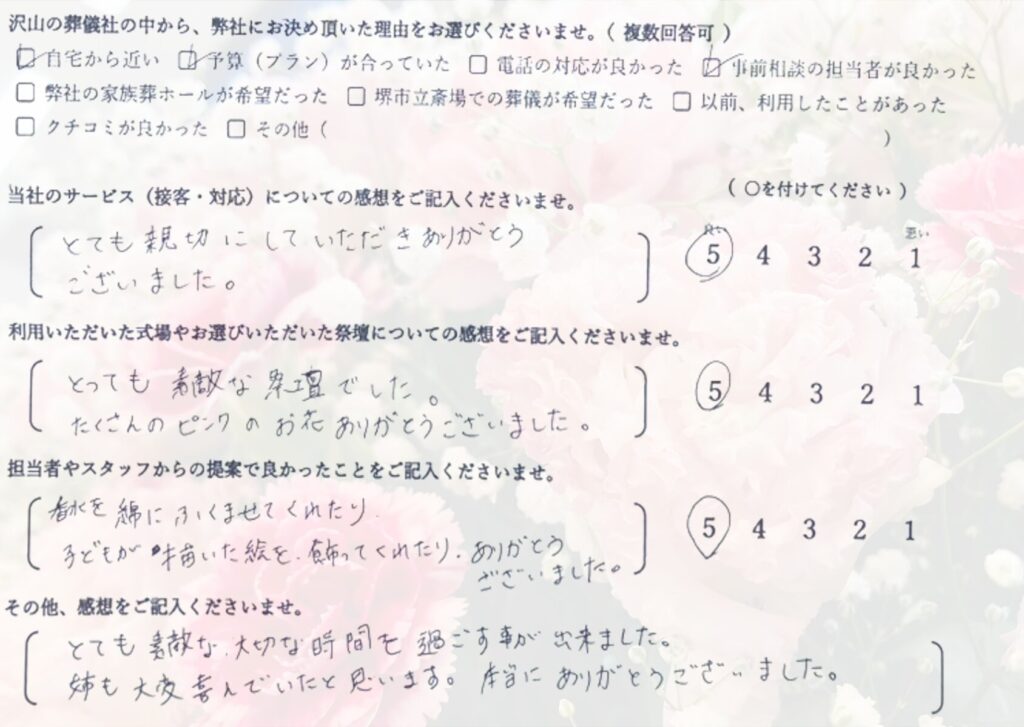 沢山の葬儀社の中から、弊社にお決め頂いた理由をお選びくださいませ。（ 複数回答可 ）
☑ 自宅から近い ☑ 予算（プラン）が合っていた □ 電話の対応が良かった ☑ 事前相談の担当者が良かった
□ 弊社の家族葬ホールが希望だった □ 堺市立斎場での葬儀が希望だった □ 以前、利用したことがあった
□ クチコミが良かった □ その他（ ）
当社のサービス（接客・対応）についての感想をご記入くださいませ。 （ ○を付けてください ）
とても親切にしていただきありがとう
ございました。
良い 悪い
5 4 3 2 1
利用いただいた式場やお選びいただいた祭壇についての感想をご記入くださいませ。
とっても素敵な祭壇でした。
たくさんのピンクのお花ありがとうございました。
5 4 3 2 1
担当者やスタッフからの提案で良かったことをご記入くださいませ。
香水を綿にふくませてくれたり、
子どもが描いた絵を、飾ってくれたり、ありがとう
ございました。
5 4 3 2 1
その他、感想をご記入くださいませ。
とても素敵な、大切な時間を過ごす事が出来ました。
姉も大変喜んでいたと思います。本当にありがとうございました。